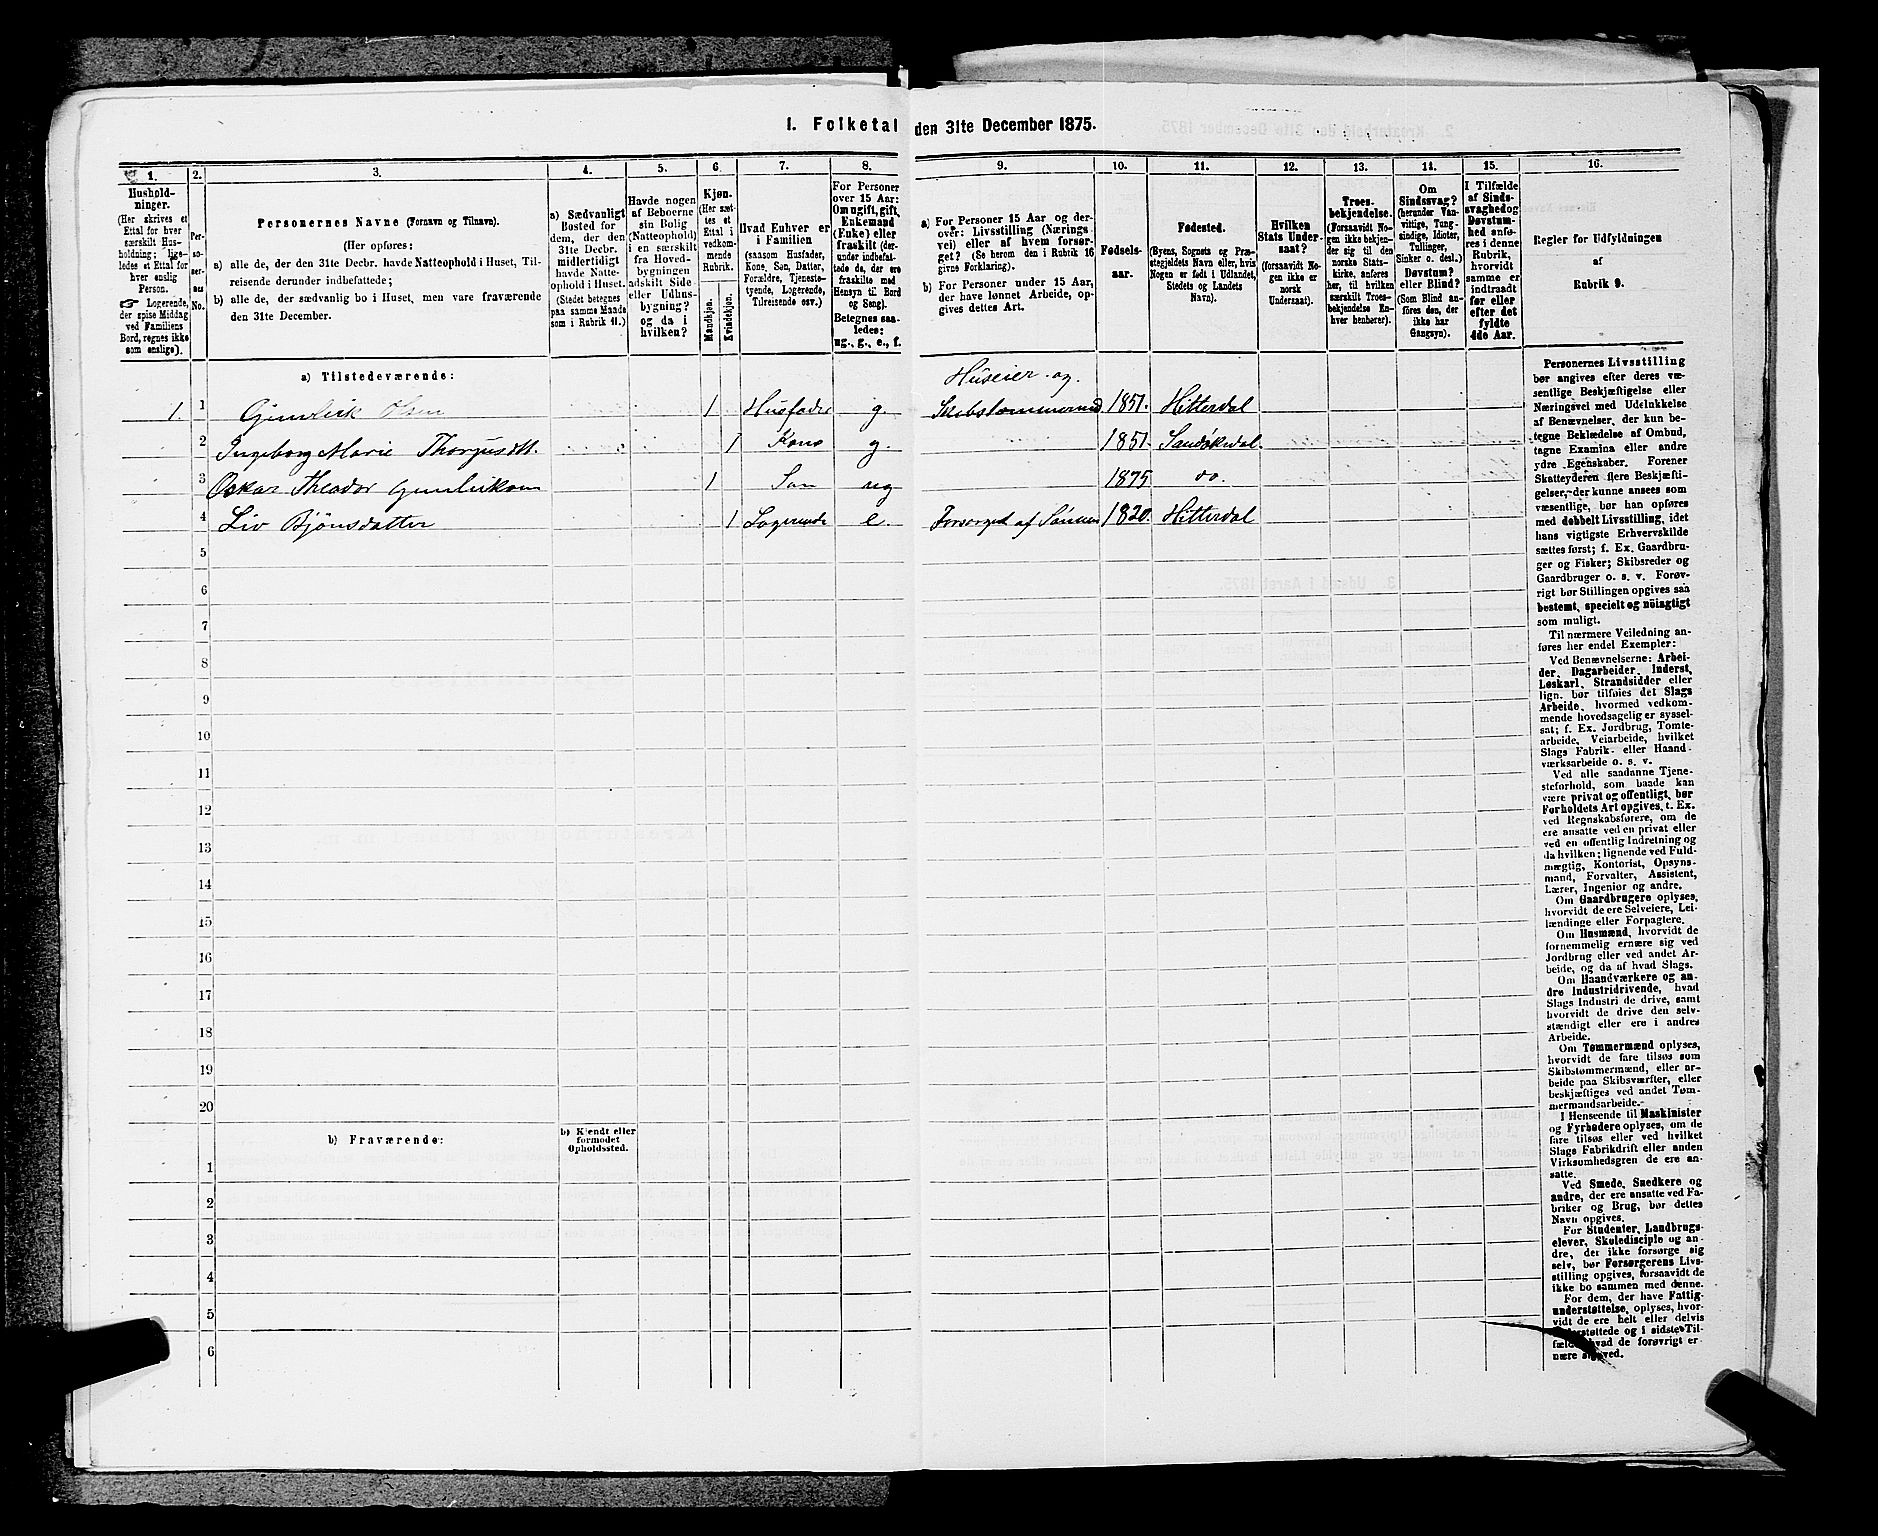 1. Folketal den 31te December 1875.
1.
Hushold-
ninger.
(Her skrives et
Ettal for hver
særskilt Hus-
holdning; lige-
ledes et Ettal for
hver enslig
Person.
Logerende,
der spise Middag
ved Familiens
Bord, regnes ikke
som enslige).
2.
Per-
soner-
nes
No.
3.
Personernes Navne (Fornavn og Tilnavn).
(Her opføres:
a) alle de, der den 31te Decbr. havde Natteophold i Huset, Til-
reisende derunder indbefattede;
b) alle de, der sædvanlig bo i Huset, men vare fraværende
den 31te December.
4.
a) Sædvanligt
Bosted for
dem, der den
31te Decbr.
midlertidigt
havde Natte-
ophold i Huset.
(Stedet betegnes
paa samme Maade
som i Rubrik 11.)
5.
Havde nogen
af Beboerne
sin Bolig
(Natteophold)
i en særskilt
fra Hoved-
bygningen
adskilt Side
eller Udhus-
bygning?
og da i
hvilken?
6.
Kjøn.
(Her sæt-
tes et
Ettal i
vedkom-
mende
Rubrik.
Mandkjøn.
Kvindekjøn.
7.
Hvad Enhver er
i Familien
(saasom Husfader,
Kone, Søn, Datter,
Forældre, Tjeneste-
tyende, Logerende,
Tilreisende osv.)
8.
For Personer
over 15 Aar:
Om ugift, gift,
Enkemand
(Enke) eller
fraskilt (der-
under indbefat-
tede de, der ere
fraskilte med
Hensyn til Bord
og Seng).
Betegnes saa-
ledes:
ug., g., e., f.
9.
a) For Personer 15 Aar og der-
over: Livsstilling (Nærings-
vei) eller af hvem forsør-
get? (Se herom den i Rubrik 16
givne Forklaring).
b) For Personer under 15 Aar,
der have lønnet Arbeide, op-
gives dettes Art.
10.
Fødsels-
aar.
11.
Fødested.
(Byens, Sognets og Præ-
stegjeldets Navn eller, hvis
Nogen er født i Udlandet,
Stedets og Landets
Navn).
12.
Hvilken
Stats Under-
saat?
(forsaavidt No-
gen ikke er
norsk
Undersaat).
13.
Troes-
bekjendelse.
(Forsaavidt No-
gen ikke bekjen-
der sig til den
norske Stats-
kirke, anføres
her, til hvilken
særskilt Troes-
bekjendelse En-
hver henhører).
14.
Om
Sindssvag?
(herunder Van-
vittige, Tung-
sindige, Idioter,
Tullinger,
Sinker o. desl.)
Døvstum?
eller Blind?
(Som Blind an-
føres den, der
ikke har
Gangsyn).
15.
I Tilfælde
af Sinds-
svaghed og
Døvstum-
hed anfø-
res i denne
Rubrik,
hvorvidt
samme er
indtraadt
før eller
efter det
fyldte
4de Aar.
16.
Regler for Udfyldningen
af
Rubrik 9.
a) Tilstedeværende:
Huseier og
1. 1 Gunleik Olsen 1 Husfader g. Skibstømmermand 1851. Hitterdal
2 Ingeborg Marie Thorgusdtt. 1 Kone g. 1851. Sandøkedal.
3 Oskar Theodor Gunleiksen 1 Søn ug 1875 do.
4 Liv Bjönsdatter 1 Logerende e. Forsørget af Sønnen 1820. Hitterdal
5
6
7
8
9
10
11
12
13
14
15
16
17
18
19
20
b) Fraværende:
b) Kjendt eller
formodet
Opholdssted.
1
2
3
4
5
6
Personernes Livsstilling
bør angives efter deres væ-
sentlige Beskjæftigelse eller
Næringsvei med Udelukkelse
af Benævnelser, der kun be-
tegne Beklædelse af Ombud,
tagne Examina eller andre
ydre Egenskaber. Forener
Skatteyderen flere Beskjæfti-
gelser, der kunne ansees som
væsentlige, bør han opføres
med dobbelt Livsstilling, idet
hans vigtigste Erhvervskilde
sættes først; f. Ex. Gaardbru-
ger og Fisker; Skibsreder og
Gaardbruger o. s. v. Forøv-
rigt bør Stillingen opgives saa
bestemt, specielt og nöiagtigt
som muligt.
Til nærmere Veiledning an-
føres her endel Exempler:
Ved Benævnelserne: Arbei-
der, Dagarbeider, Inderst,
Løskarl, Strandsidder eller
lign. bør tilføies det Slags
Arbeide, hvormed vedkom-
mende hovedsagelig er syssel-
sat; f. Ex. Jordbrug, Tomte-
arbeide, Veiarbeide, hvilket
Slags Fabrik- eller Haand-
værksarbeide o. s. v.
Ved alle saadanne Tjene-
steforhold, som baade kan
være privat og offentligt, bør
Forholdets Art opgives, t. Ex.
ved Regnskabsførere, om de
ere ansatte ved en privat eller
ved en offentlig Indretning og
da hvilken; lignende ved Fuld-
mægtig, Kontorist, Opsyns-
mand, Forvalter, Assistent,
Lærer, Ingeniør og andre.
Om Gaardbrugere oplyses,
hvorvidt de ere Selveiere, Lei-
lændinge eller Forpagtere.
Om Husmænd, hvorvidt de
fornemmelig ernære sig ved
Jordbrug eller ved andet Ar-
beide, og da af hvad Slags.
Om Haandværkere og an-
dre Industridrivende, hvad
Slags Industri de drive, samt
hvorvidt de drive den selv-
stændigt eller ere i andres
Arbeide.
Om Tømmermænd oplyses,
hvorvidt de fare tilsøs som
Skibstømmermænd, eller ar-
beide paa Skibsværfter, eller
beskjæftiges ved andet Tøm-
mermandsarbeide.
I Henseende til Maskinister
og Fyrbødere oplyses, om de
fare tilsøs eller ved hvilket
Slags Fabrikdrift eller anden
Virksomhedsgren de ere an-
satte.
Ved Smede, Snedkere og
andre, der ere ansatte ved Fa-
briker og Brug, bør dettes
Navn opgives.
For Studenter, Landbrugs-
elever, Skoledisciple og an-
dre, der ikke forsørge sig
selv, bør Forsørgerens Livs-
stilling opgives, forsaavidt de
ikke bo sammen med denne.
For dem, der have Fattig-
understøttelse, oplyses, hvor-
vidt de ere helt eller delvis
understøttede og i sidste Til-
fælde hvad de forøvrigt er-
nære sig ved.